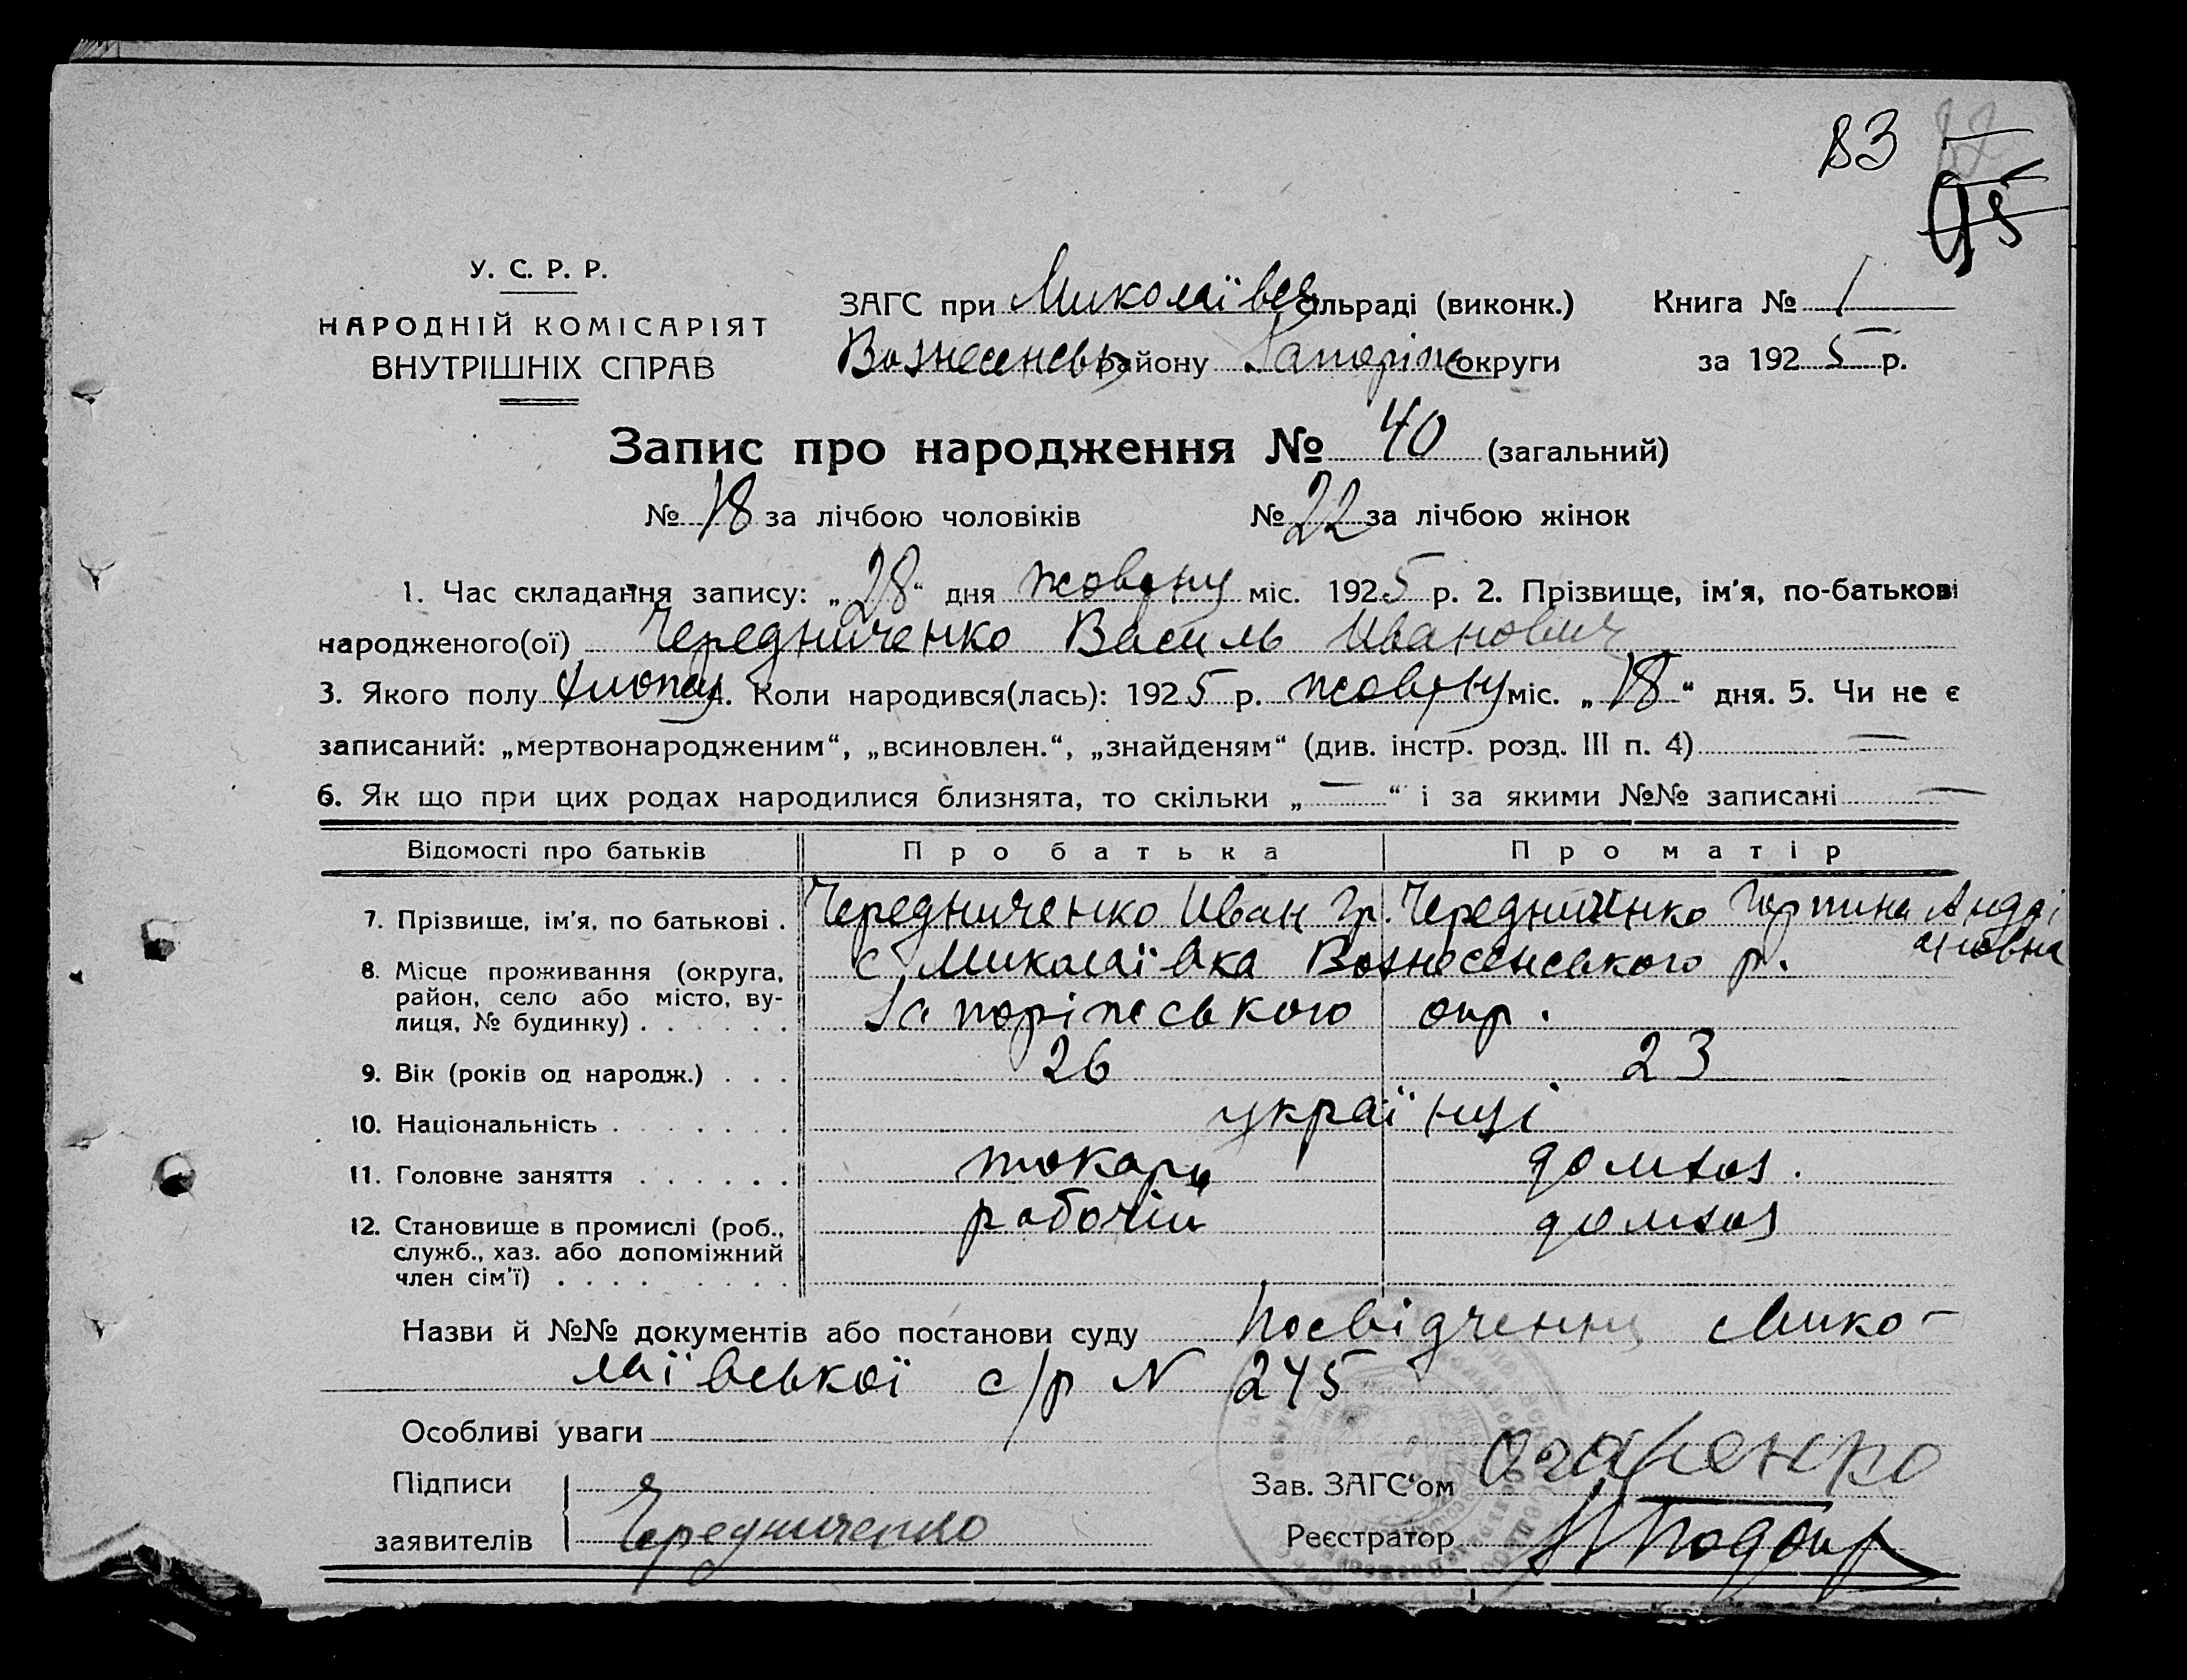 83
95
У. С. Р. Р.
НАРОДНІЙ КОМІСАРІЯТ
ВНУТРІШНІХ СПРАВ
ЗАГС при Миколаївск сільраді (виконк.) Книга № 1
Вознесенськ району Запоріж округи за 1925 р.
Запис про народження № 40 (загальний)
№ 18 за лічбою чоловіків № 22 за лічбою жінок
1. Час складання запису: „28“ дня жовтня міс. 1925 р. 2. Прізвище, ім'я, по-батькові
народженого(ої) Чередниченко Василь Иванович
3. Якого полу хлопец 4. Коли народився(лась): 1925 р. жовтня міс. „18“ дня. 5. Чи не є
записаний: „мертвонародженим“, „всиновлен.“, „знайденям“ (див. інстр. розд. III п. 4) —
6. Як що при цих родах народилися близнята, то скільки „—“ і за якими №№ записані —
Відомості про батьків Про батька Про матір
7. Прізвище, ім'я, по батькові . Чередниченко Иван Гр. Чередниченко Горпина Андрі
яновна
8. Місце проживання (округа, с. Миколаївка Вознесенського р.
район, село або місто, ву-
лиця, № будинку) . . . . . . Запоріжського окр.
9. Вік (років од народж.) . . . 26 23
10. Національність . . . . . . . українці
11. Головне заняття . . . . . . токарь домхоз.
12. Становище в промислі (роб., рабочій домхоз
служб., хаз. або допоміжний
член сім'ї) . . . . . . . . .
Назви й №№ документів або постанови суду Посвідчення Мико-
лаївської с/р N 245
Особливі уваги
Підписи Зав. ЗАГС'ом
заявителів Чередниченко Реєстратор